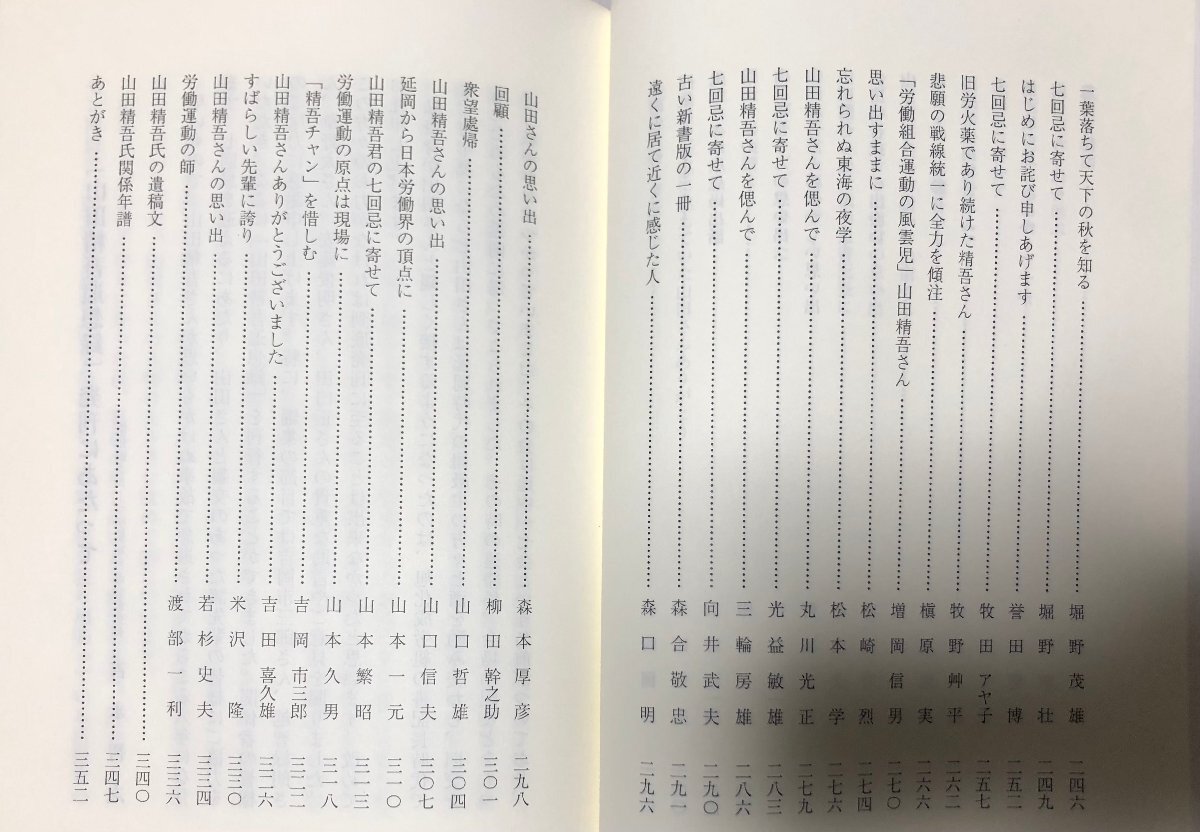 一葉落ちて天下の秋を知る……堀野茂雄 二四六
七回忌に寄せて……堀野壮 二四九
はじめにお詫び申しあげます……誉田博 二五二
七回忌に寄せて……牧田アヤ子 二五七
旧労火薬であり続けた精吾さん……牧野艸平 二六二
悲願の戦線統一に全力を傾注……槇原実 二六六
「労働組合運動の風雲児」山田精吾さん……増岡信男 二七〇
思い出すままに……松崎烈 二七四
忘れられぬ東海の夜学……松本学 二七六
山田精吾さんを偲んで……丸川光正 二七九
七回忌に寄せて……光益敏雄 二八三
山田精吾さんを偲んで……三輪房雄 二八六
七回忌に寄せて……向井武夫 二九〇
古い新書版の一冊……森合敬忠 二九一
遠くに居て近くに感じた人……森口明 二九六
山田さんの思い出……森本厚彦 二九八
回顧……柳田幹之助 三〇一
衆望處帰……山口哲雄 三〇四
山田精吾さんの思い出……山口信夫 三〇七
延岡から日本労働界の頂点に……山本一元 三一〇
山田精吾君の七回忌に寄せて……山本繁昭 三一三
労働運動の原点は現場に……山本久男 三一八
「精吾チャン」を惜しむ……吉岡市三郎 三二二
山田精吾さんありがとうございました……吉田喜久雄 三二六
すばらしい先輩に誇り……米沢隆 三三〇
山田精吾さんの思い出……若杉史夫 三三四
労働運動の師……渡部一利 三三六
山田精吾氏の遺稿文……三四〇
山田精吾氏関係年譜……三四七
あとがき……三五二